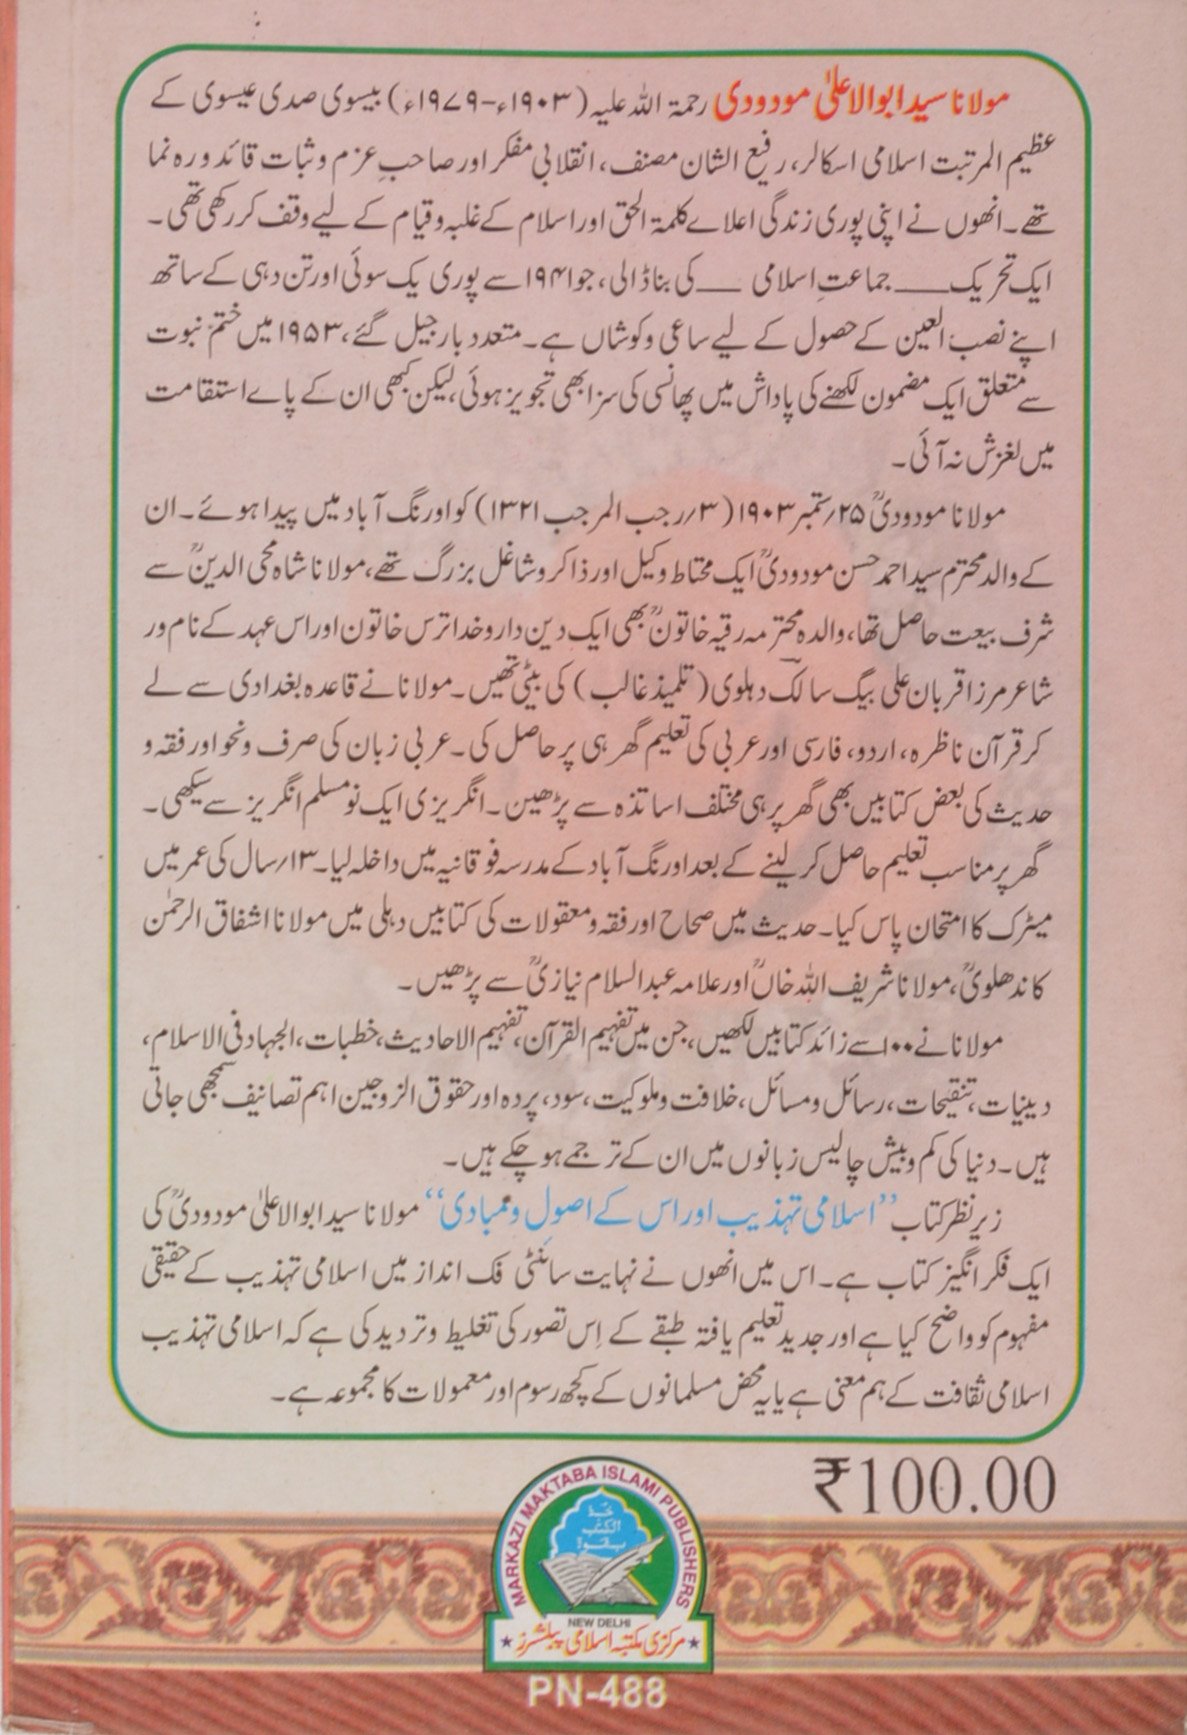 مولانا سید ابوالاعلیٰ مودودی رحمۃ اللہ علیہ (۱۹۰۳ء-۱۹۷۹ء) بیسوی صدی عیسوی کے
عظیم المرتبت اسلامی اسکالر، رفیع الشان مصنف، انقلابی مفکر اور صاحبِ عزم و ثبات قائد و رہ نما
تھے۔ انھوں نے اپنی پوری زندگی اعلاے کلمۃ الحق اور اسلام کے غلبہ و قیام کے لیے وقف کر رکھی تھی۔
ایک تحریک ــــ جماعتِ اسلامی ــــ کی بنا ڈالی، جو ۱۹۴۱ سے پوری یک سوئی اور تن دہی کے ساتھ
اپنے نصب العین کے حصول کے لیے ساعی و کوشاں ہے۔ متعدد بار جیل گئے، ۱۹۵۳ میں ختم نبوت
سے متعلق ایک مضمون لکھنے کی پاداش میں پھانسی کی سزا بھی تجویز ہوئی، لیکن کبھی ان کے پاے استقامت
میں لغزش نہ آئی۔
مولانا مودودیؒ ۲۵؍ستمبر ۱۹۰۳ (۳؍رجب المرجب ۱۳۲۱) کو اورنگ آباد میں پیدا ہوئے۔ ان
کے والد محترم سید احمد حسن مودودیؒ ایک محتاط وکیل اور ذاکر و شاغل بزرگ تھے، مولانا شاہ محی الدینؒ سے
شرف بیعت حاصل تھا، والدہ محترمہ رقیہ خاتونؒ بھی ایک دین دار و خدا ترس خاتون اور اس عہد کے نام ور
شاعر مرزا قربان علی بیگ سالکؔ دہلوی (تلمیذ غالب) کی بیٹی تھیں۔ مولانا نے قاعدہ بغدادی سے لے
کر قرآن ناظرہ، اردو، فارسی اور عربی کی تعلیم گھر ہی پر حاصل کی۔ عربی زبان کی صرف و نحو اور فقہ و
حدیث کی بعض کتابیں بھی گھر پر ہی مختلف اساتذہ سے پڑھین۔ انگریزی ایک نو مسلم انگریز سے سیکھی۔
گھر پر مناسب تعلیم حاصل کر لینے کے بعد اورنگ آباد کے مدرسہ فوقانیہ میں داخلہ لیا۔ ۱۳؍سال کی عمر میں
میٹرک کا امتحان پاس کیا۔ حدیث میں صحاح اور فقہ و معقولات کی کتابیں دہلی میں مولانا اشفاق الرحمٰن
کاندھلویؒ، مولانا شریف اللہ خاںؒ اور علامہ عبدالسلام نیازیؒ سے پڑھیں۔
مولانا نے ۱۰۰ سے زائد کتابیں لکھیں، جن میں تفہیم القرآن، تفہیم الاحادیث، خطبات، الجہاد فی الاسلام،
دینیات، تنقیحات، رسائل و مسائل، خلافت و ملوکیت، سود، پردہ اور حقوق الزوجین اہم تصانیف سمجھی جاتی
ہیں۔ دنیا کی کم و بیش چالیس زبانوں میں ان کے ترجمے ہو چکے ہیں۔
زیر نظر کتاب ’’اسلامی تہذیب اور اس کے اصول و مبادی‘‘ مولانا سید ابوالاعلیٰ مودودیؒ کی
ایک فکر انگیز کتاب ہے۔ اس میں انھوں نے نہایت سائنٹی فک انداز میں اسلامی تہذیب کے حقیقی
مفہوم کو واضح کیا ہے اور جدید تعلیم یافتہ طبقے کے اِس تصور کی تغلیط و تردید کی ہے کہ اسلامی تہذیب
اسلامی ثقافت کے ہم معنی ہے یا یہ محض مسلمانوں کے کچھ رسوم اور معمولات کا مجموعہ ہے۔
₹100.00
MARKAZI MAKTABA ISLAMI PUBLISHERS
خذ
الكتٰب
بقوة
NEW DELHI
مرکزی مکتبہ اسلامی پبلشرز
PN-488